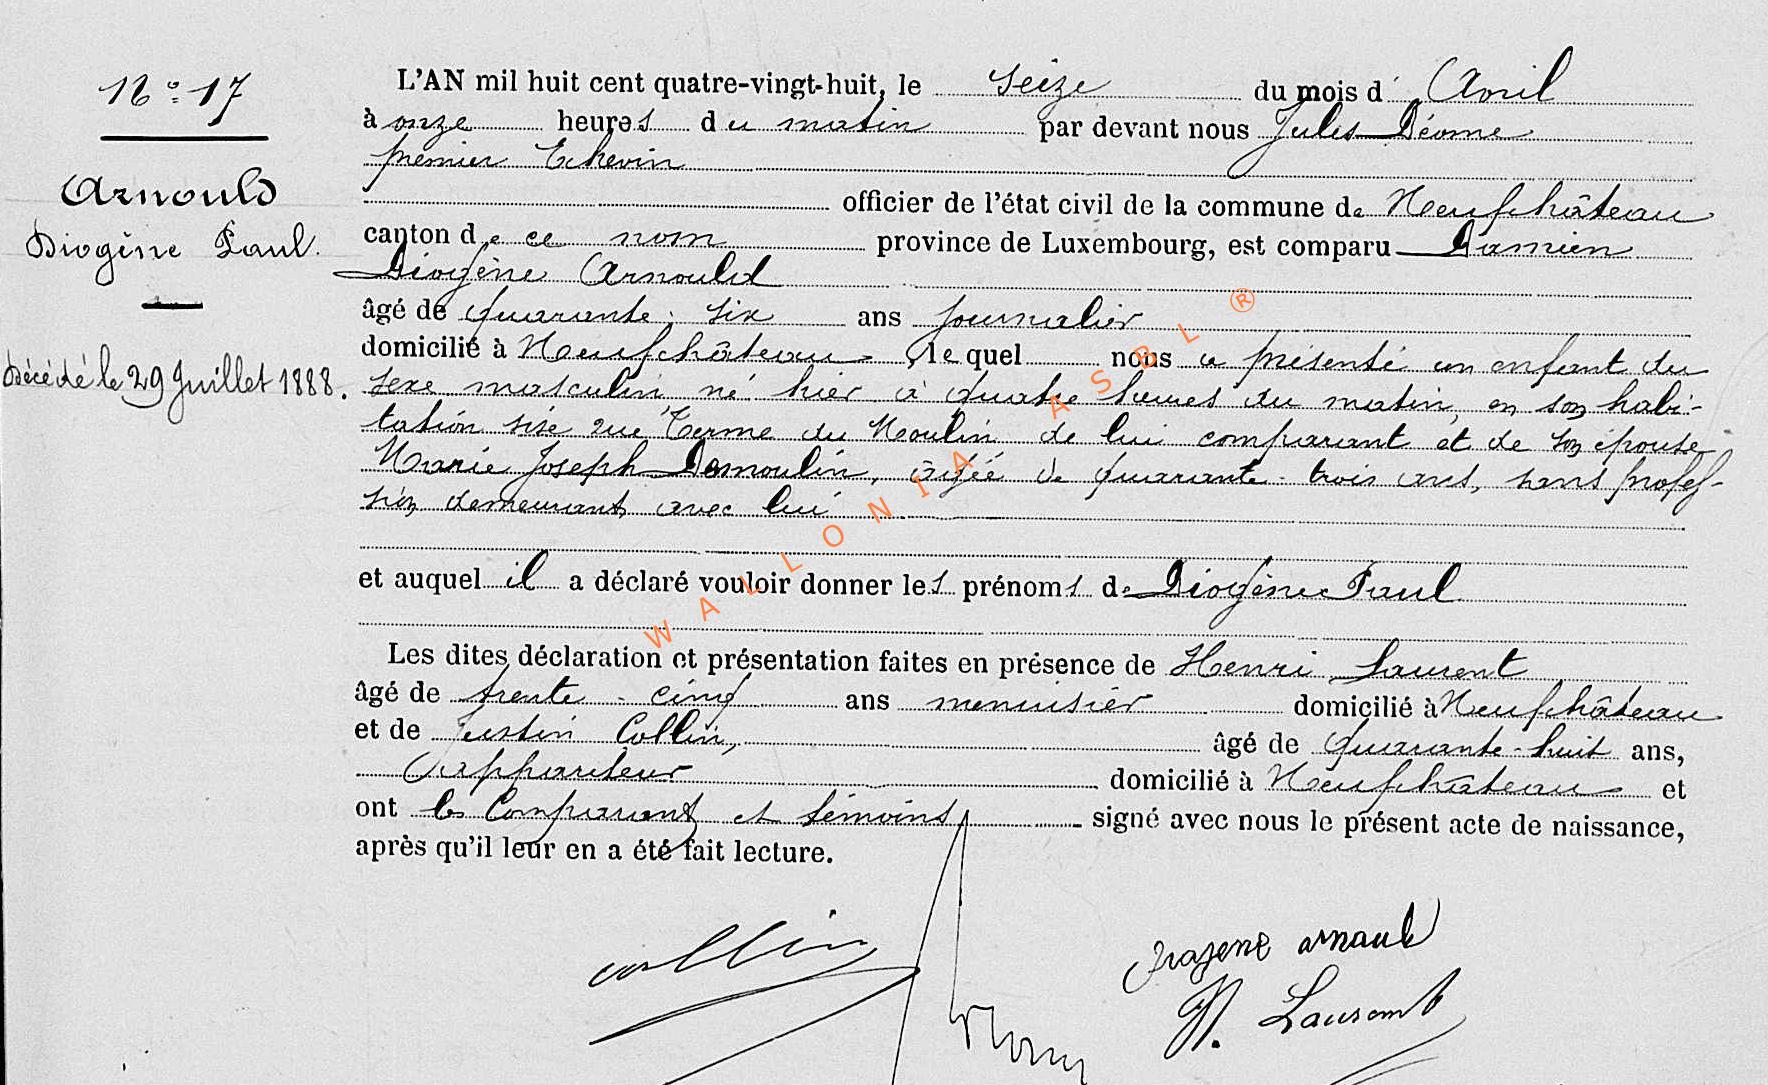 N° 17
Arnould
Diogène Paul.
Décédé le 29 Juillet 1888.
L'AN mil huit cent quatre-vingt-huit, le seize du mois d' Avril
à onze heures du matin par devant nous Jules Déome
premier Echevin
officier de l'état civil de la commune de Neufchâteau
canton de ce nom province de Luxembourg, est comparu Damien
Diogène Arnould
âgé de quarante-six ans journalier
domicilié à Neufchâteau, lequel nous a présenté un enfant du
sexe masculin né hier à quatre heures du matin, en son habi-
tation sise rue Terme du Moulin de lui comparant et de son épouse
Marie Joseph Demoulin, âgée de quarante-trois ans, sans profes-
sion demeurant avec lui
et auquel il a déclaré vouloir donner les prénoms de Diogène Paul
Les dites déclaration et présentation faites en présence de Henri Laurent
âgé de trente-cinq ans menuisier domicilié à Neufchâteau
et de Justin Collin, âgé de quarante-huit ans,
appariteur domicilié à Neufchâteau et
ont les Comparant et témoins signé avec nous le présent acte de naissance,
après qu'il leur en a été fait lecture.
collin
arnauld
H. Laurent
WALLONIA ASBL ®